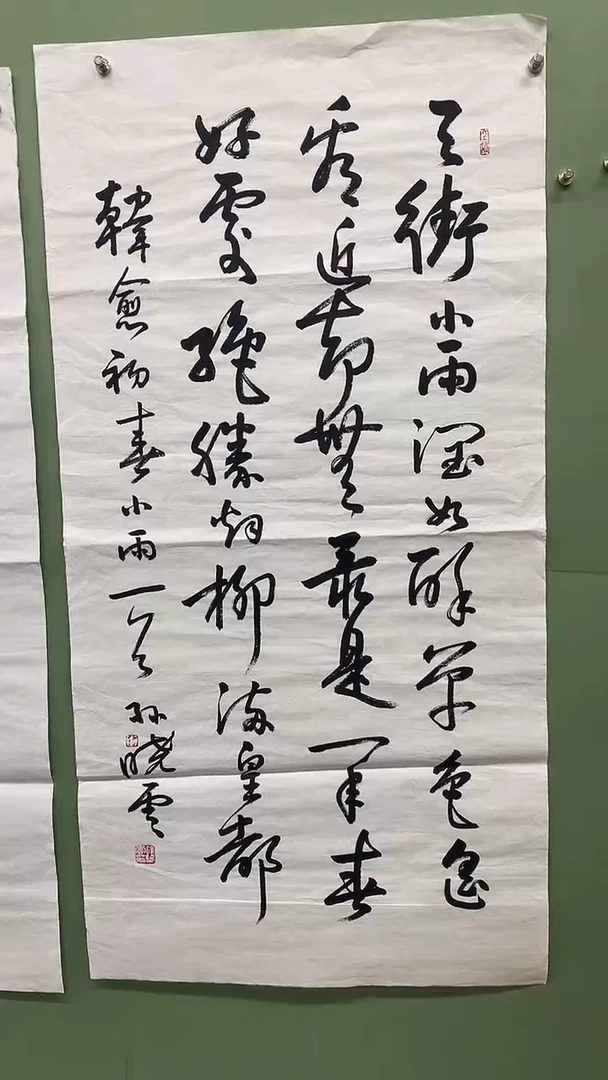 天街小雨潤如酥草色遙
看近却無最是一年春
好處絕勝烟柳滿皇都
韓愈初春小雨一首 孫曉雲